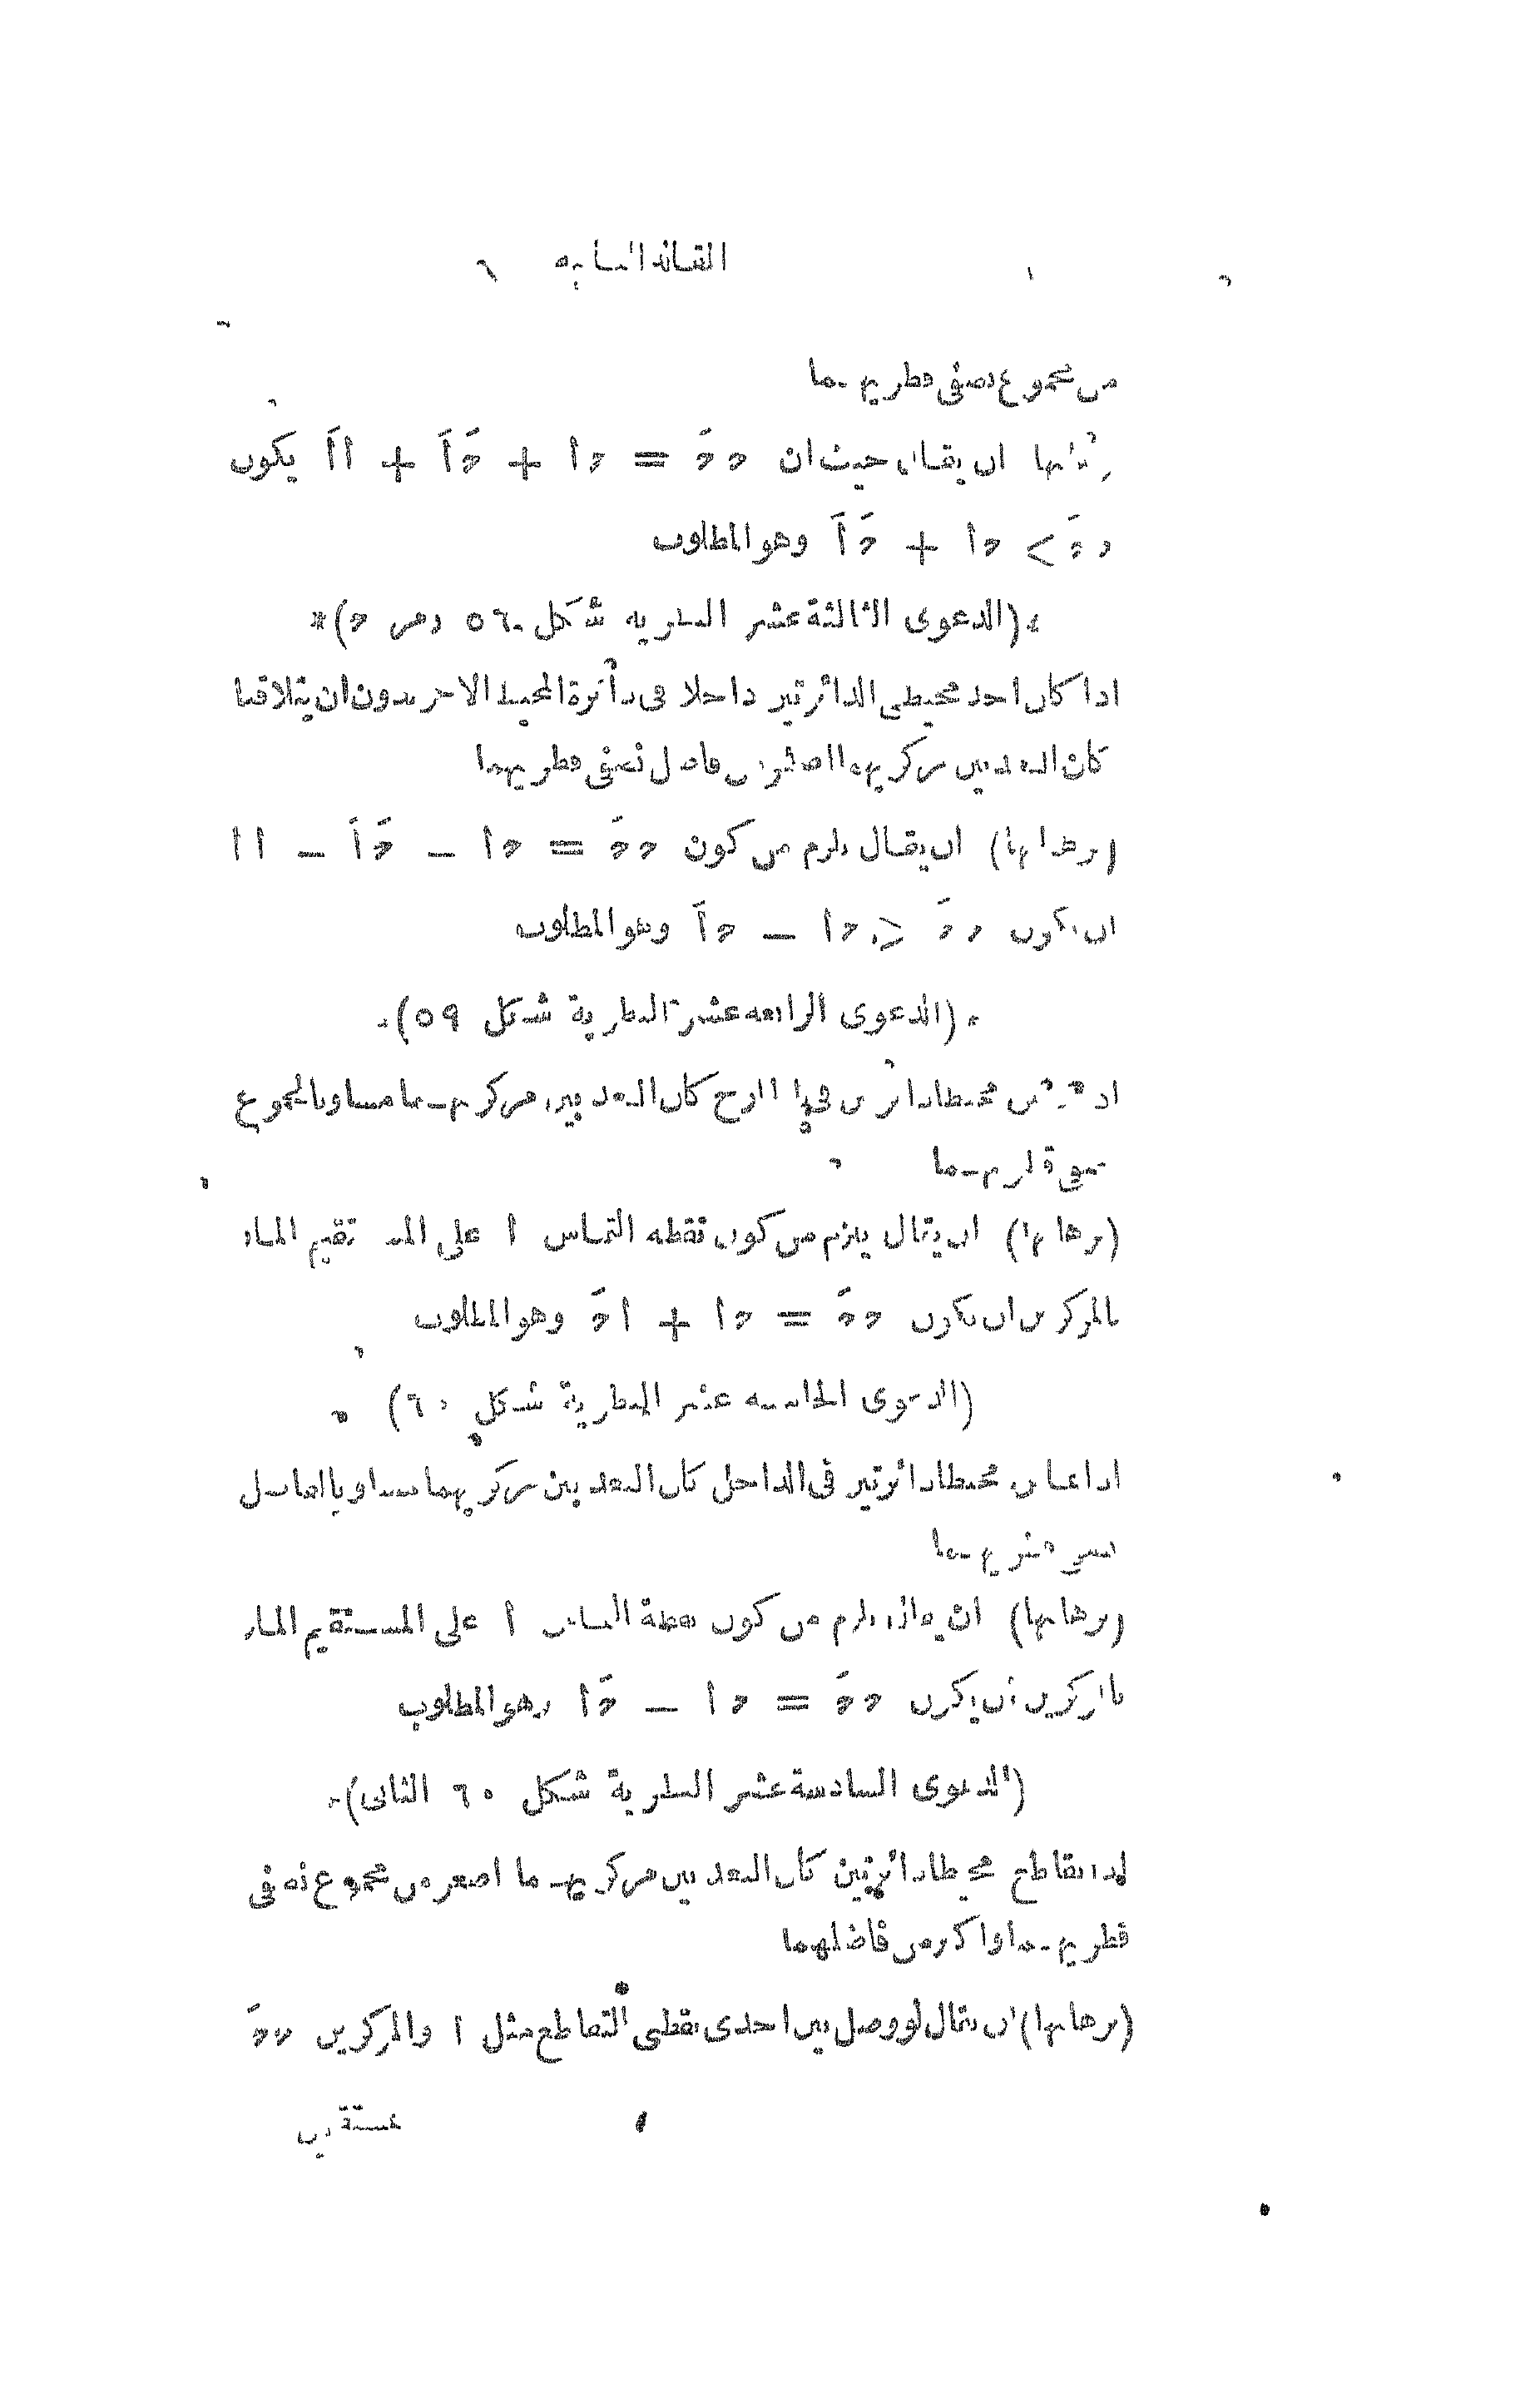 المقالة الثانية
من مجموع نصفى قطريهما
وبرهانها ان يقال حيث ان م مَ = م ا + مَ اَ + ا اَ يكون
م مَ > م ا + مَ اَ وهو المطلوب
(الدعوى الثالثة عشر النظرية شكل ٥٦)
اذا كان احد محيطى الدائرتين داخلا فى دائرة المحيط الاخر بدون ان يتلاقيا
كان البعد بين مركزيهما اصغر من فاضل نصفى قطريهما
(برهانها) ان يقال يلزم من كون م مَ = م ا − مَ اَ − ا ا
ان يكون م مَ < م ا − مَ اَ وهو المطلوب
(الدعوى الرابعة عشر النظرية شكل ٥٩)
محيطا دائرتين كان البعد بين مركزيهما مساويا لمجموع
نصفى قطريهما
(برهانها) ان يقال يلزم من كون نقطة التماس ا على المستقيم المار
بالمركزين ان يكون م مَ = م ا + ا مَ وهو المطلوب
(الدعوى الخامسة عشر النظرية شكل ٦٠)
اذا تماس محيطا دائرتين فى الداخل كان البعد بين مركزيهما مساويا لفاضل
نصفى قطريهما
(برهانها) ان يقال يلزم من كون نقطة التماس ا على المستقيم المار
بالمركزين ان يكون م مَ = م ا − مَ ا وهو المطلوب
(الدعوى السادسة عشر النظرية شكل ٦٠ الثانى)
اذا تقاطع محيطا دائرتين كان البعد بين مركزيهما اصغر من مجموع نصفى
قطريهما واكبر من فاضلهما
(برهانها) ان يقال لو وصل بين احدى نقطى التقاطع مثل ا والمركزين م مَ